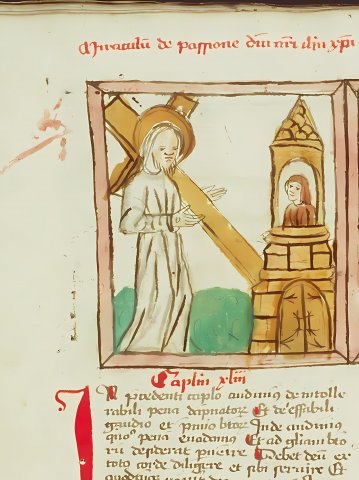 Miraculu de passione dni nri ihu xpi
Caplm xliii
In pcedenti caplo audiuim⁹ de intolle
rabili pena dapnatoꝝ Et de effibili
gaudio et pmio btoꝝ Inde audiuim⁹
quo pena euadam⁹ Et ad gliam bto
rū desiderat puenire Debet deū ex
toto corde diligere et sibi seruire Et